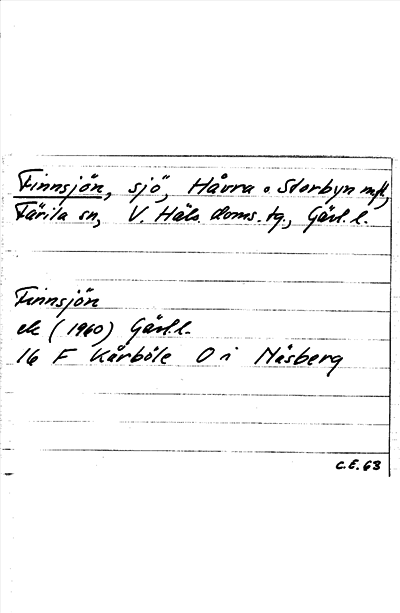 Finnsjön, sjö, Håvra o. Storbyn mfl,
Färila sn, V. Häls. doms. tg., Gävl. l.
Finnsjön
ek (1960) Gävl. l.
16 F Kårböle O i Näsberg
C.E. 63